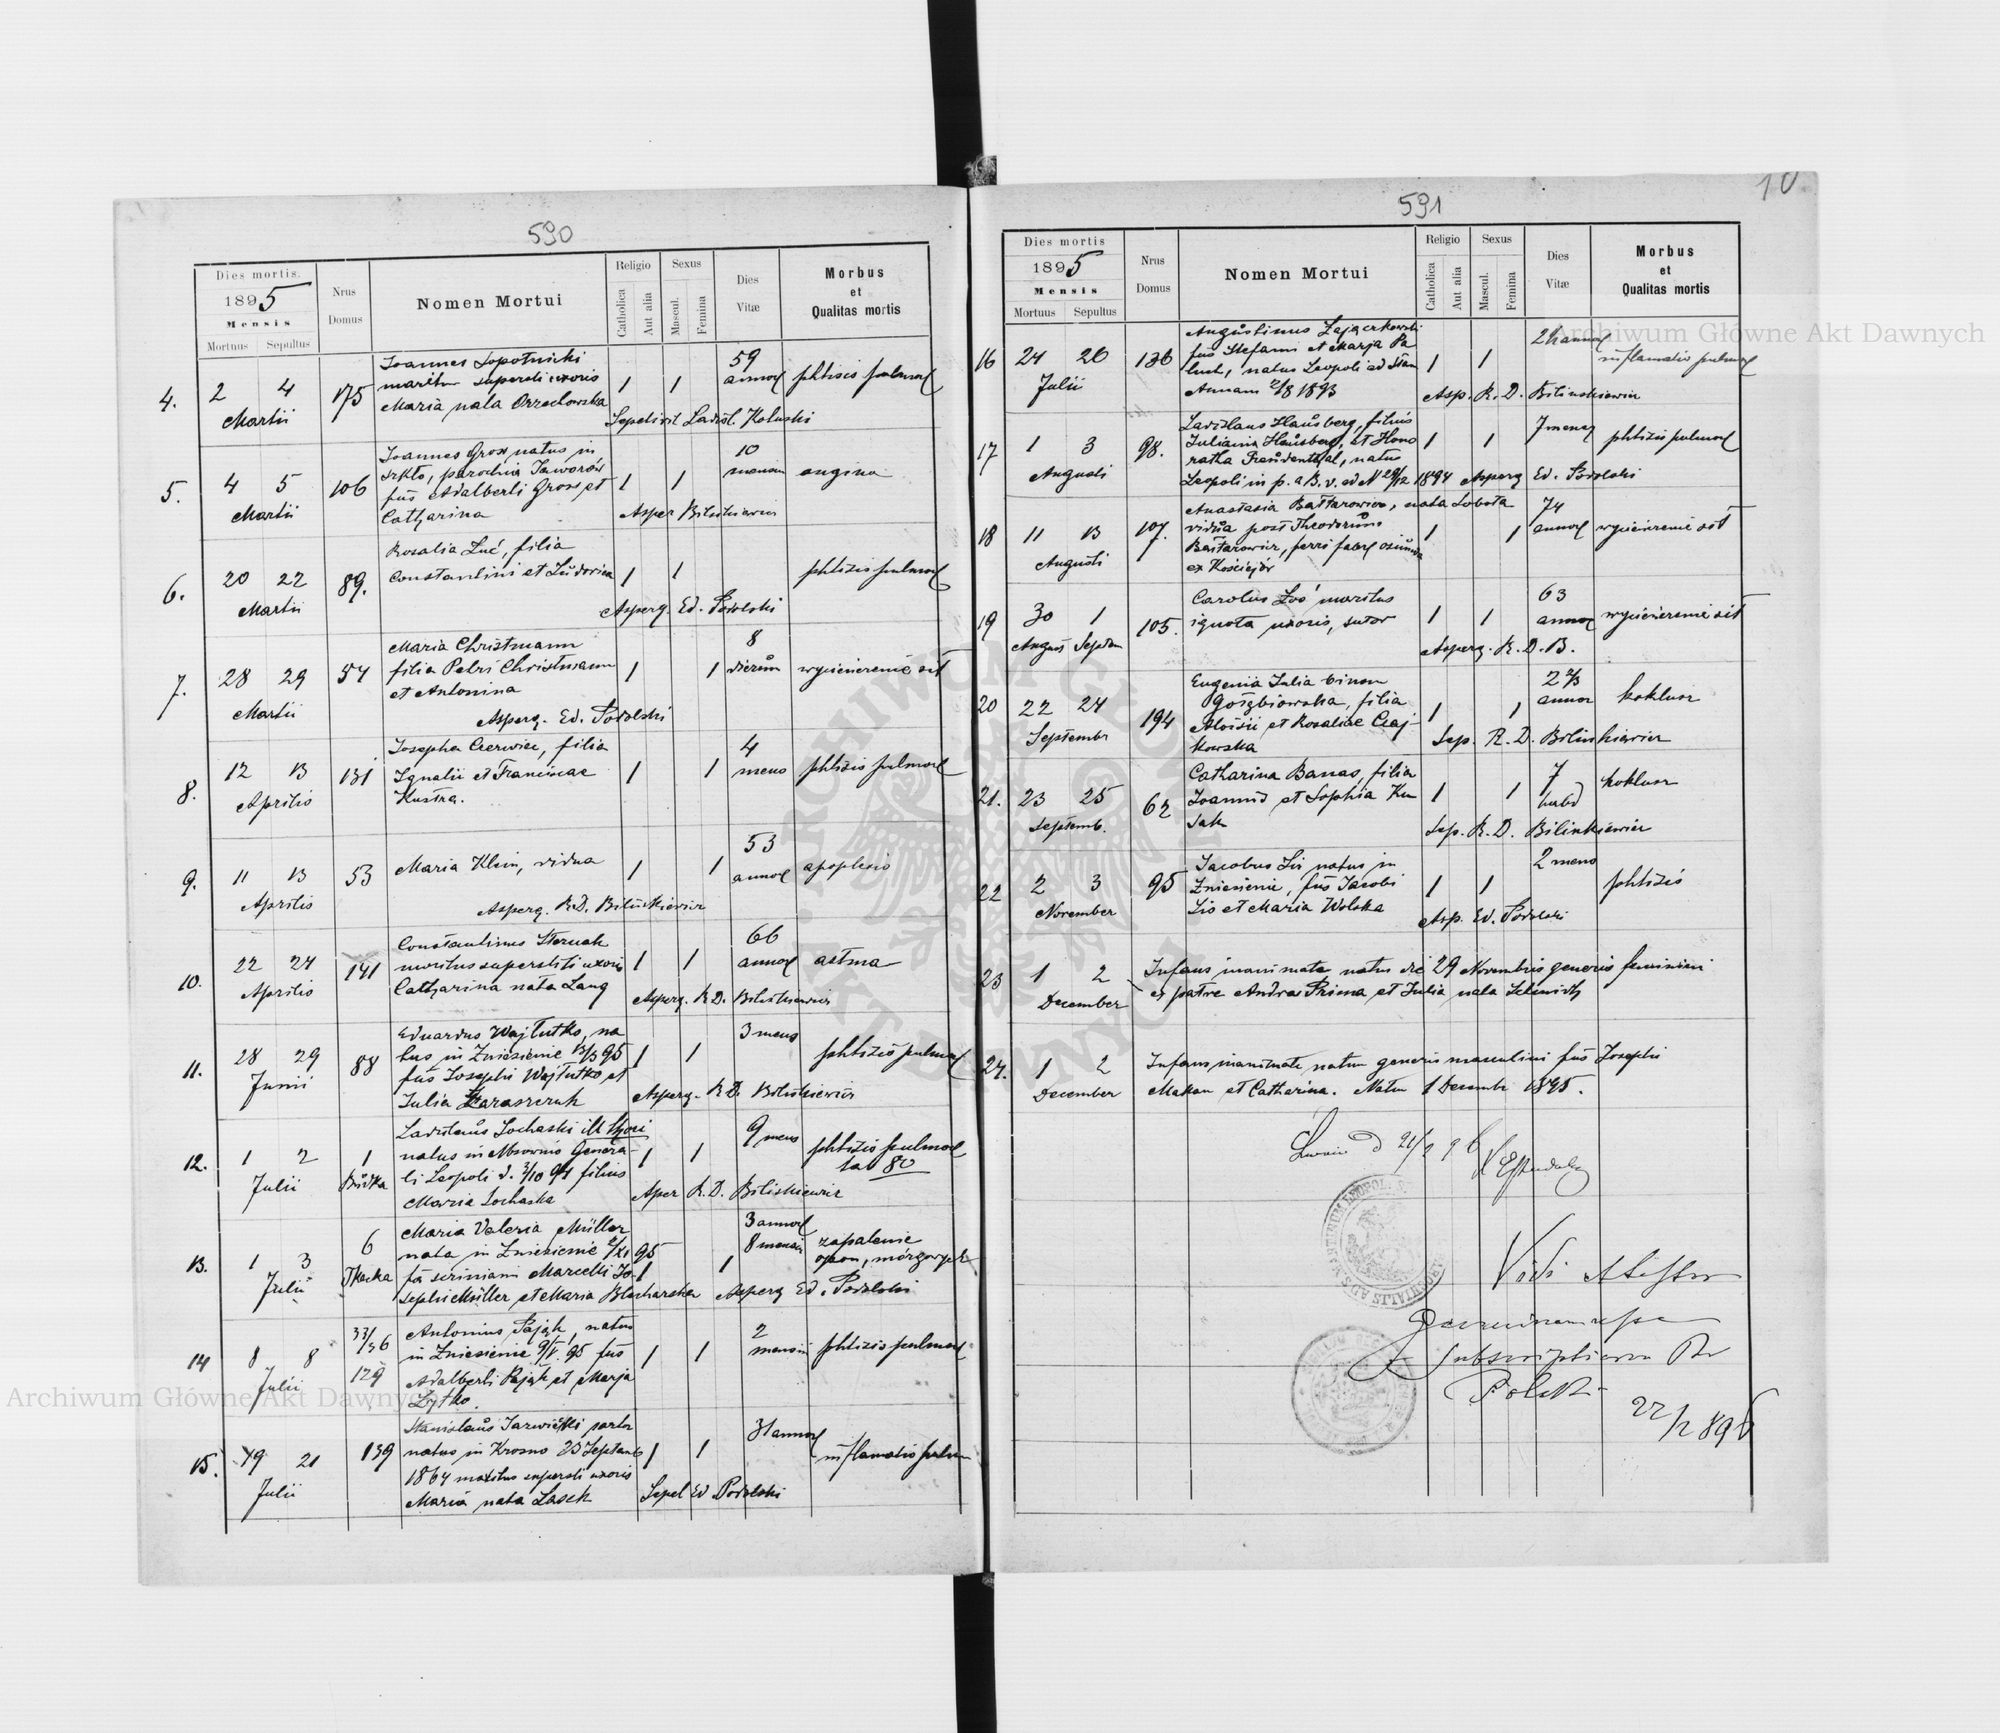 590
Dies mortis.
1895
Mensis
Mortuus Sepultus
Nrus
Domus
Nomen Mortui
Religio
Catholica
Aut alia
Sexus
Mascul.
Femina
Dies
Vitæ
Morbus
et
Qualitas mortis
4. 2 4 Martii 175
Joannes Sopotnicki
maritus supersti uxoris
Maria nata Orzechowska
1 1 59 annor phtisis pulmon
Sepelivit Ladisl.
5. 4 5 Martii 106
Joannes Gross natus in
Szkło, parochia Jaworów
fus Adalberti Gross et
Catharina
1 1 10 mensium angina
Asper Biliukiewicz
6. 20 22 Martii 89.
Rosalia Żuć, filia
Constantini et Ludovica
1 1 phtisis pulmon
Asperg. Ed. Podolski
7. 28 29 Martii 54
Maria Christmann
filia Petri Christmann
et Antonina
1 1 8 dierum wycieńczenie sił
Asperg. Ed. Podolski
8. 12 13 Aprilis 131
Josepha Czerwiec, filia
Ignatii et Franciscae
Kustra.
1 1 4 mens phtisis pulmon
9. 11 13 Aprilis 53
Maria Klein, vidua
1 1 53 annor apoplexio
Asperg. R.D. Biliukiewicz
10. 22 24 Aprilis 141
Constantinus Sternak
maritus superstiti uxoris
Catharina nata Lang
1 1 66 annor astma
Asperg. R.D. Biliukiewicz
11. 28 29 Junii 88
Eduardus Wojtutko, na
tus in Zniesienie 13/3 95
fus Josephi Wojtutko et
Julia
1 1 3 mens phtisis pulmon
Asperg. R.D. Biliukiewicz
12. 1 2 Julii 1 Budka
Ladislaus Sochaski ill thori
natus in Nosocomio Genera-
li Leopoli d. 3/10 94 filius
Maria Sochaska
1 1 9 mens phtisis pulmon
ta 80
Asper R.D. Biliukiewicz
13. 1 3 Julii 6 Tkacka
Maria Valeria Müller
nata in Zniesienie 2/XI 95
fa Marcelli Jo-
sephi Müller et Maria Blacharska
1 1 3 annor 8 mensium zapalenie
opon, mózgowych
Asperg Ed. Podolski
14 8 8 Julii 33/36 129
Antonius Pająk, natus
in Zniesienie 9/V. 95 fus
Adalberti Pająk et Marja
Zytko.
1 1 2 mensium phtisis pulmon
15. 19 21 Julii 139
Stanislaus
natus in Krosno 23 Septemb
1864 maritus supersti uxoris
Maria nata Lasek
1 1 31 annor inflamatio pulm
Sepel Ed Podolski
10
591
Dies mortis
1895
Mensis
Mortuus Sepultus
Nrus
Domus
Nomen Mortui
Religio
Catholica
Aut alia
Sexus
Mascul.
Femina
Dies
Vitæ
Morbus
et
Qualitas mortis
16 24 26 Julii 136
Augustinus Zajączkowski
fus Stefani et Marja Pa
luch, natus Leopoli ad Stam
Annam 2/8 1893
1 1 2 annor inflamatio pulmon
Asp. R. D. Biliukiewicz
17 1 3 Augusti 98.
Ladislaus Hausberg, filius
Juliania Hausberg, et Hono
ratha Freudenthal, natus
Leopoli in p. a B. v. ad N 29/12 1894
1 1 7 mens phtisis pulmon
Asperg Ed. Podolski
18 11 13 Augusti 107.
Anastasia Battarowicz, nata Sobota
vidua post Theodorum
Battarowicz, ferri fabri
ex Kościejów
1 1 74 annor wycieńczenie sił
19 30 1 August Septem 105.
Carolus Łoś maritus
ignota uxoris, sutor
1 1 63 annor wycieńczenie sił
Asperg. R. D. B.
20 22 24 Septembr 194
Eugenia Julia binom
Gołębiowska, filia
Aloisii et Rosaliae Czaj-
kowska
1 1 2 2/3 annor koklusz
Sep. R. D. Biliukiewicz
21. 23 25 Septemb. 62
Catharina Banas, filia
Joannis et Sophia Ku
sak
1 1 7 hebd koklusz
Sep. R. D. Biliukiewicz
22 2 3 November 95
Jacobus Lis natus in
Zniesienie, fus Jacobi
Lis et Maria Wolska
1 1 2 mens phtisis
Asp. Ed. Podolski
23 1 2 December
Infans inanimata natus die 29 Novembris generis feminini
ex patre Andrea Prima et Julia nata Schmidt
24. 1 2 December
Infans inanimata natum generis masculini fus Josephi
Makan et Catharina. Natum 1 Decembr 1895.
Lwów d 21/2 96
Vidi
subscriptionem
Polski
22/2 896
Archiwum Główne Akt Dawnych
Archiwum Główne Akt Dawnych
ARCHIWUM GŁÓWNE AKT DAWNYCH